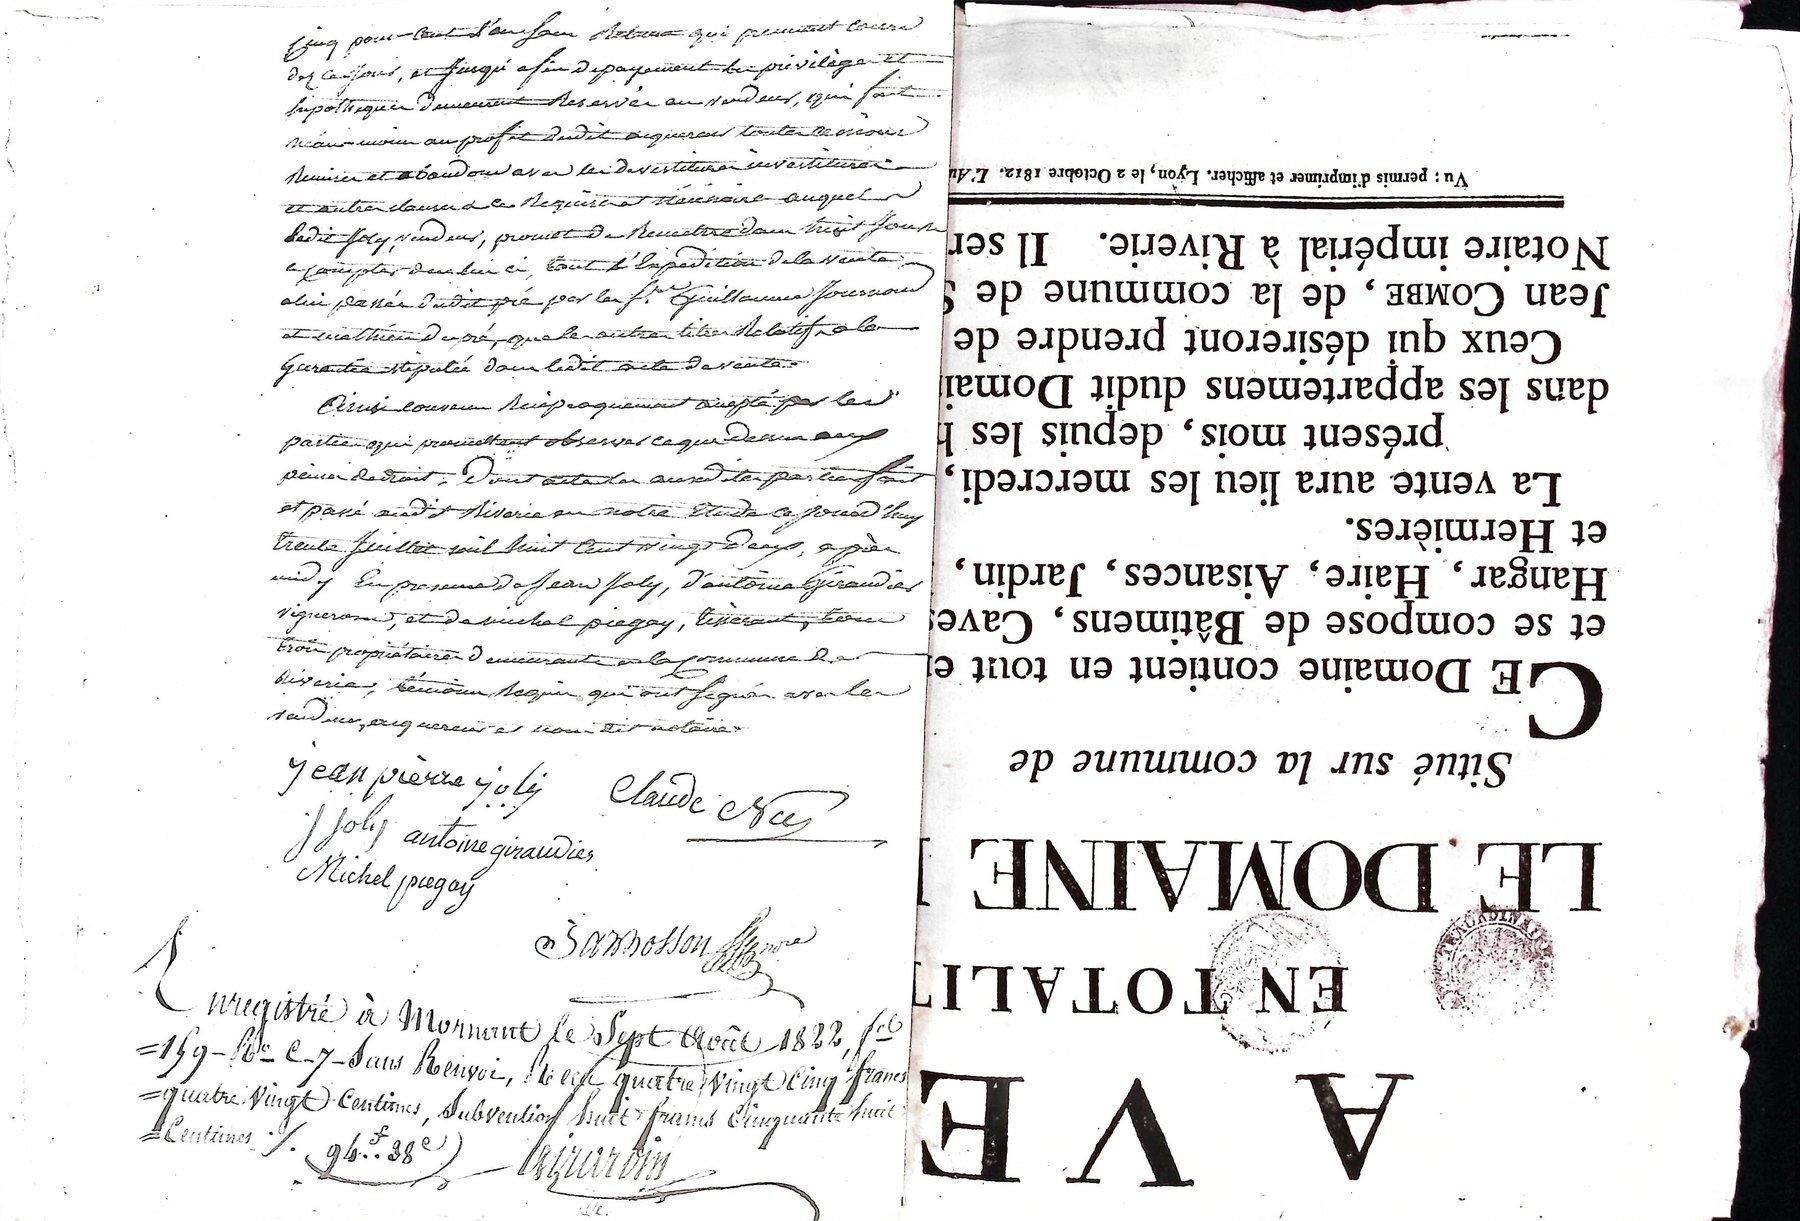 Cinq pour cent d'an sans Retenue qui prennent cours
dez ce jour, et jusqu'a fin de payement les privilèges et
hipothèques demeurent Reservés au vendeur, qui fait
néan-moin au profit dudit acquereur toutes démission
Remises et abandon avec les devestitures investitures
et autres clauses à ce Requises et Nécéssaires auquel
Ledit Joly, vendeur, promet de Remettre dans huit Jours
a compter d'aului ci, tant l'Expédition de la vente
a lui passée dudit pré par les s.rs Guillaume Journoud
et mathieu dupré, que les autres titres Relatifs a la
Garantie stipulée dans ledit acte de vente.
Ainsi convenu Réciproquement accepté par les
parties qui promettent observer ce que dessus aux
peines de droit. Dont acte les ausdites parties fait
et passé audit Riverie en notre Etude ce Jourd'huy
trente Juillet mil huit Cent vingt deux, après
midy En presence de Jean Joly, d'antoine Giraudier
vignerons, et de michel piegay, tisserant, tous
trois propriétaires demeurants a la Commune de
Riverie, témoins Requis qui ont signés avec les
vendeur, acquereur et nous dit notaire.
jean pièrre joly
Claude Née
J Joly
antoine giraudier
Michel piegay
Enregistré à Mornant le Sept Août 1822, f.o
=159= R.o C. 7 - Sans Renvoi, Reçu quatre vingt Cinq francs
=quatre vingt Centimes, Subvention huit francs Cinquante huit
=Centimes ./. 94.f 38c
Girardin
A VE
EN TOTALIT
LE DOMAINE
Situé sur la commune de
CE Domaine contient en tout e
et se compose de Bâtimens, Caves
Hangar, Haire, Aisances, Jardin,
et Hermières.
La vente aura lieu les mercredi,
présent mois, depuis les h
dans les appartemens dudit Domai
Ceux qui désireront prendre de
Jean COMBE, de la commune de S
Notaire impérial à Riverie. Il ser
Vu : permis d'imprimer et afficher. Lyon, le 2 Octobre 1812. L'Au